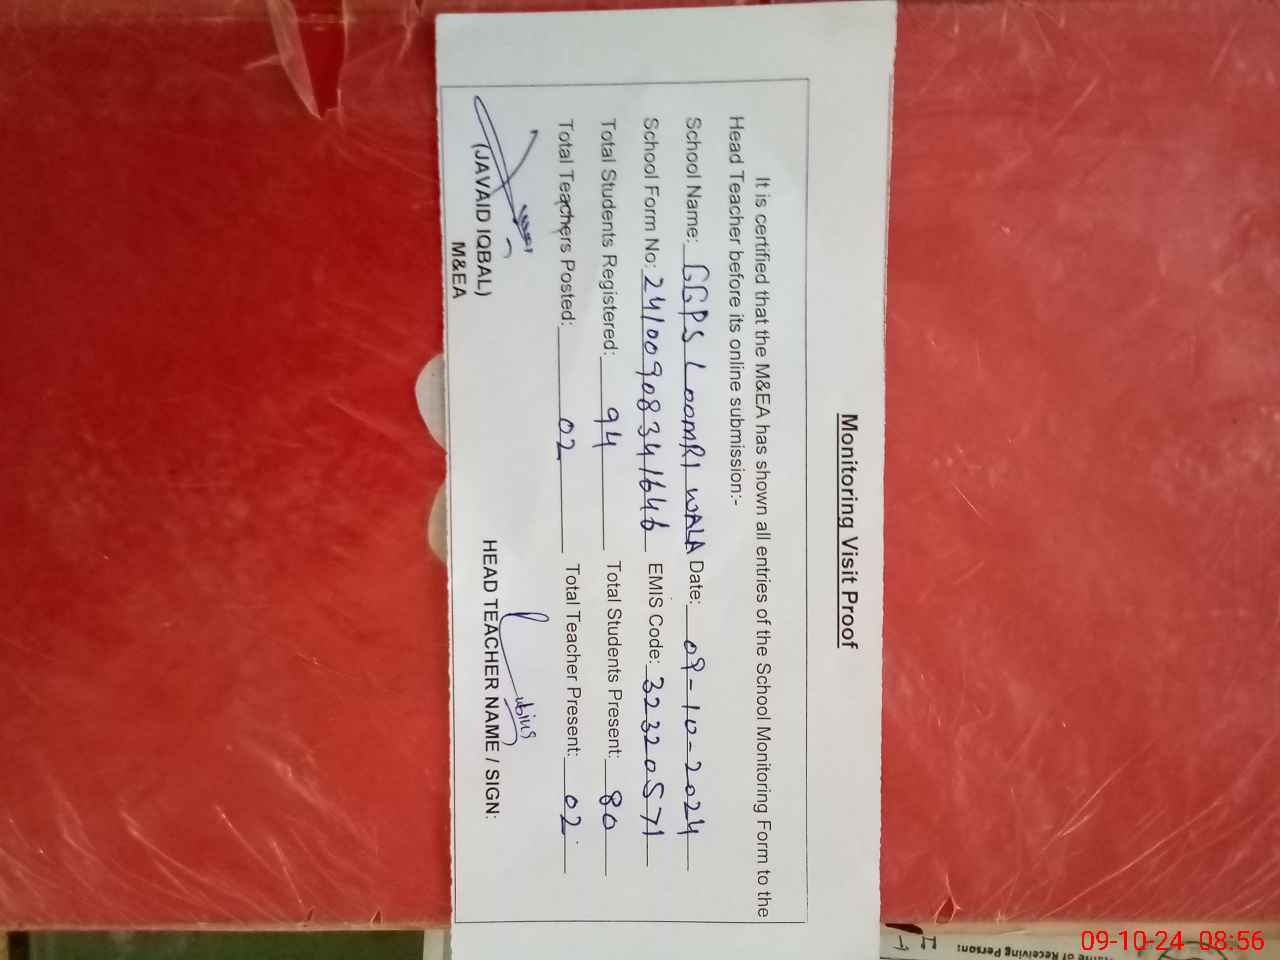 Monitoring Visit Proof
It is certified that the M&EA has shown all entries of the School Monitoring Form to the
Head Teacher before its online submission:-
School Name: GGPS LOOMRI WALA Date: 09-10-2024
School Form No: 24100908341646 EMIS Code: 32320571
Total Students Registered: 94 Total Students Present: 80
Total Teachers Posted: 02 Total Teacher Present: 02
(JAVAID IQBAL)
M&EA
HEAD TEACHER NAME / SIGN:
of Receiving Person:
09-10-24 08:56